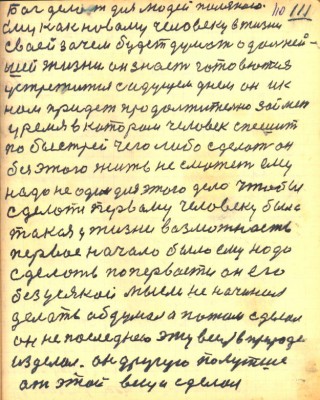 Бог делает для людей полезного. 110 111
Ему как новому человеку в жизни
своей зачем будет думать о дальней-
шей жизни он знает готовится
устретится с идущем днем он к
нам придет продолжительно займет
уремя в котором человек спешит
по быстрей чего либо сделать он
без этого жить не сможет ему
надо не один для этого дело чтобы
сделоти первому человеку была
такая у жизни возможность
первое начало было ему надо
сделоть поперваети он его
без усякой мысли не начинал
делать обдумал а потом сделал
он не последнею эту вещь в природе
изделал. он другую получше
от этой вещи сделал